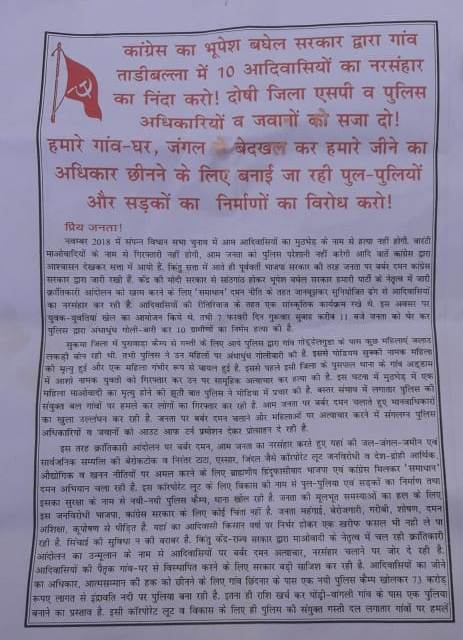 कांग्रेस का भूपेश बघेल सरकार द्वारा गांव
ताडीबल्ला में 10 आदिवासियों का नरसंहार
का निंदा करो! दोषी जिला एसपी व पुलिस
अधिकारियों व जवानों को सजा दो!
हमारे गांव-घर, जंगल से बेदखल कर हमारे जीने का
अधिकार छीनने के लिए बनाई जा रही पुल-पुलियों
और सड़कों का निर्माणों का विरोध करो!
प्रिय जनता!
नवम्बर 2018 में संपन्न विधान सभा चुनाव में आम आदिवासियों का मुठभेड़ के नाम से हत्या नहीं होगी, वारंटी
माओवादियों के नाम से गिरफ्तारी नहीं होगी, आम जनता को पुलिस परेशानी नहीं करेगी आदि वादें कांग्रेस द्वारा
आश्वासन देखकर सत्ता में आयी हैं, किंतु सत्ता में आते ही पूर्ववर्ती भाजपा सरकार की तरह जनता पर बर्बर दमन कांग्रेस
सरकार द्वारा जारी रखी हैं. केंद्र की मोदी सरकार से सांठगांठ होकर भूपेश बघेल सरकार हमारी पार्टी के नेतृत्व में जारी
क्रांतिकारी आंदोलन को खत्म करने के लिए 'समाधान' दमन नीति के तहत जानबूझकर सुनियोजित ढ़ंग से आदिवासियों
का नरसंहार कर रही हैं. आदिवासियों की रीतिरिवाज के तहत एक सांस्कृतिक कार्यक्रम रखे थे. इस अवसर पर
युवक-युवतियां खेल का आयोजन किये थे. तभी 7 फरवरी दिन गुरूवार सुबह करीब 11 बजे जनता को घेर कर
पुलिस द्वारा अंधाधुंध गोली-बारी कर 10 ग्रामीणों का निर्मम हत्या की है.
सुकमा जिला में पुसवाड़ा कैम्प से गस्ती के लिए आये पुलिस द्वारा गांव गोड्डेलगुड़ा के पास कुछ महिलाएं जलाऊ
लकड़ी बीन रही थी. तभी पुलिस ने उन महिलाओं पर अंधाधुंध गोलीबारी की है. इसमें पोडियाम सुक्की नामक महिला
की मृत्यु हुई और एक महिला गंभीर रूप से घायल हुई है. इससे पहले इसी जिला के पुसपाल थाना के गांव
में आशो नामक युवती को गिरफ्तार कर उन पर सामूहिक अत्याचार कर हत्या की है. इस घटना में मुठभेड़ में एक
महिला माओवादी का मृत्यु होने की झूठी बात पुलिस ने मीडिया में प्रचार की है. बस्तर संभाग में लगातार पुलिस की
संयुक्त बल गांवों पर हमले कर लोगों का गिरफ्तार कर रही है. आम जनता पर बर्बर दमन चलाते हुए मानवाधिकारों
का खुला उल्लंघन कर रही है. जनता पर बर्बर दमन चलाने और महिलाओं पर अत्याचार करने में संगलग्न पुलिस
अधिकारियों व जवानों को आउट आफ टर्न प्रमोशन देकर प्रोत्साहन दे रही है.
इस तरह क्रांतिकारी आंदोलन पर बर्बर दमन, आम जनता का नरसंहार करते हुए यहां की जल-जंगल-जमीन एवं
सार्वजनिक सम्पत्ति की बेरोकटोक व निरंतर टाटा, एस्सार, जिंदल जैसे कॉरपोरेट लूट जनविरोधी व देश-द्रोही आर्थिक,
औद्योगिक व खनन नीतियों पर अमल करने के लिए ब्राह्मणीय हिंदूफासीवाद भाजपा एवं कांग्रेस मिलकर 'समाधान'
दमन अभियान चला रही है. इस कॉरपोरेट लूट के लिए विकास के नाम से पुल-पुलिया एवं सड़कों का निर्माण तथा
इसका सुरक्षा के नाम से नयी-नयी पुलिस कैम्प, थाना खोल रही है. जनता की मूलभूत समस्याओं का हल के लिए
इस जनविरोधी भाजपा, कांग्रेस सरकार के लिए कोई चिंता नहीं है. जनता महंगाई, बेरोजगारी, गरीबी, शोषण, दमन
अशिक्षा, कूपोषण से पीड़ित है. यहां का आदिवासी किसान वर्षा पर निर्भर होकर एक खरीफ फसल भी नही ले पा
रही है. सिंचाई की सुविधा न की बराबर है. किंतु केंद्र-राज्य सरकार द्वारा माओवादी के नेतृत्व में चल रही क्रांतिकारी
आंदोलन का उन्मूलन के नाम से आदिवासियों पर बर्बर दमन अत्याचार, नरसंहार चलाने पर जोर दे रही है.
आदिवासियों की पैतृक गांव-घर से विस्थापित करने के लिए सरकार बड़ी साजिश कर रही है. आदिवासियों का जीने
का अधिकार, आत्मसम्मान की हक को छीनने के लिए गांव छिंदनार के पास एक नयी पुलिस कैम्प खोलकर 73 करोड़
रूपए लागत से इंद्रावति नदी पर पुलिया बना रही है. इतना ही राशि खर्च कर पोंड़ी-वांगली गांव के पास एक पुलिया
बनाने का प्रस्ताव है. इसी कॉरपोरेट लूट व विकास के लिए ही पुलिस की संयुक्त गस्ती दल लगातार गांवों पर हमले